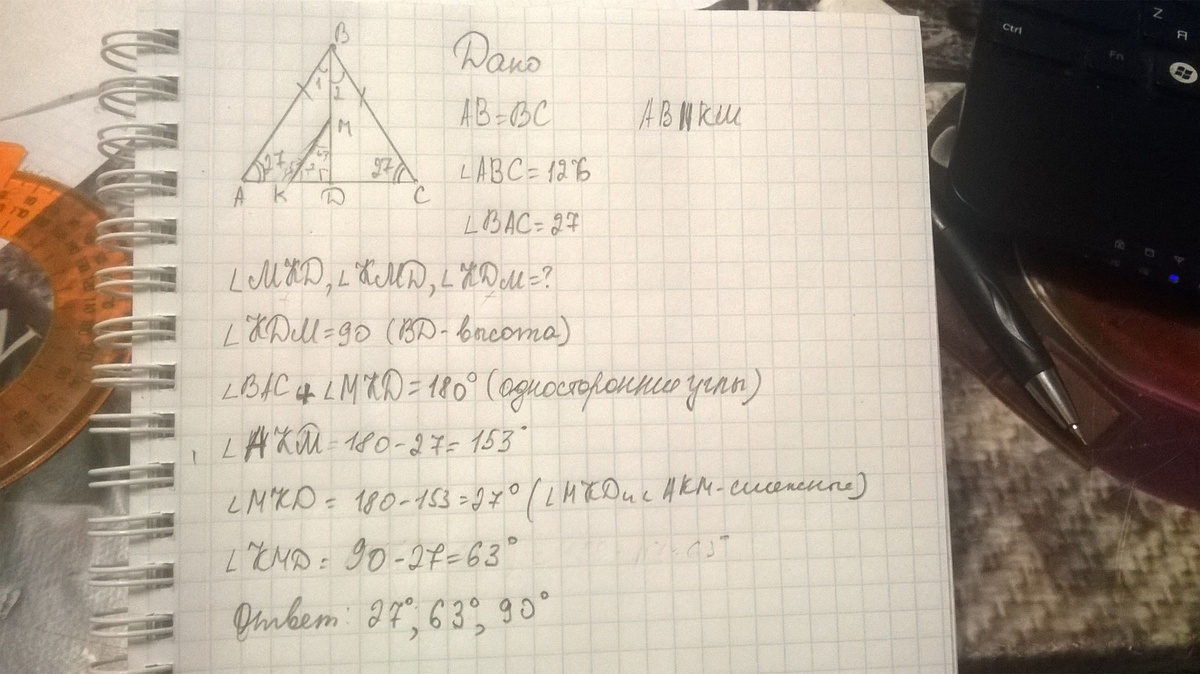 B
1
2
M
27
63
27
A
K
D
C
Дано
AB=BC AB || KM
∠ABC=126
∠BAC=27
∠MKD, ∠KMD, ∠KDM=?
∠KDM=90 (BD-высота)
∠BAC + ∠MKD=180° (односторонние углы)
∠AKM=180-27=153°
∠MKD = 180-153=27° (∠MKD и ∠AKM-смежные)
∠KMD = 90-27=63°
Ответ: 27°; 63°; 90°
Ctrl
Fn
Z
Я